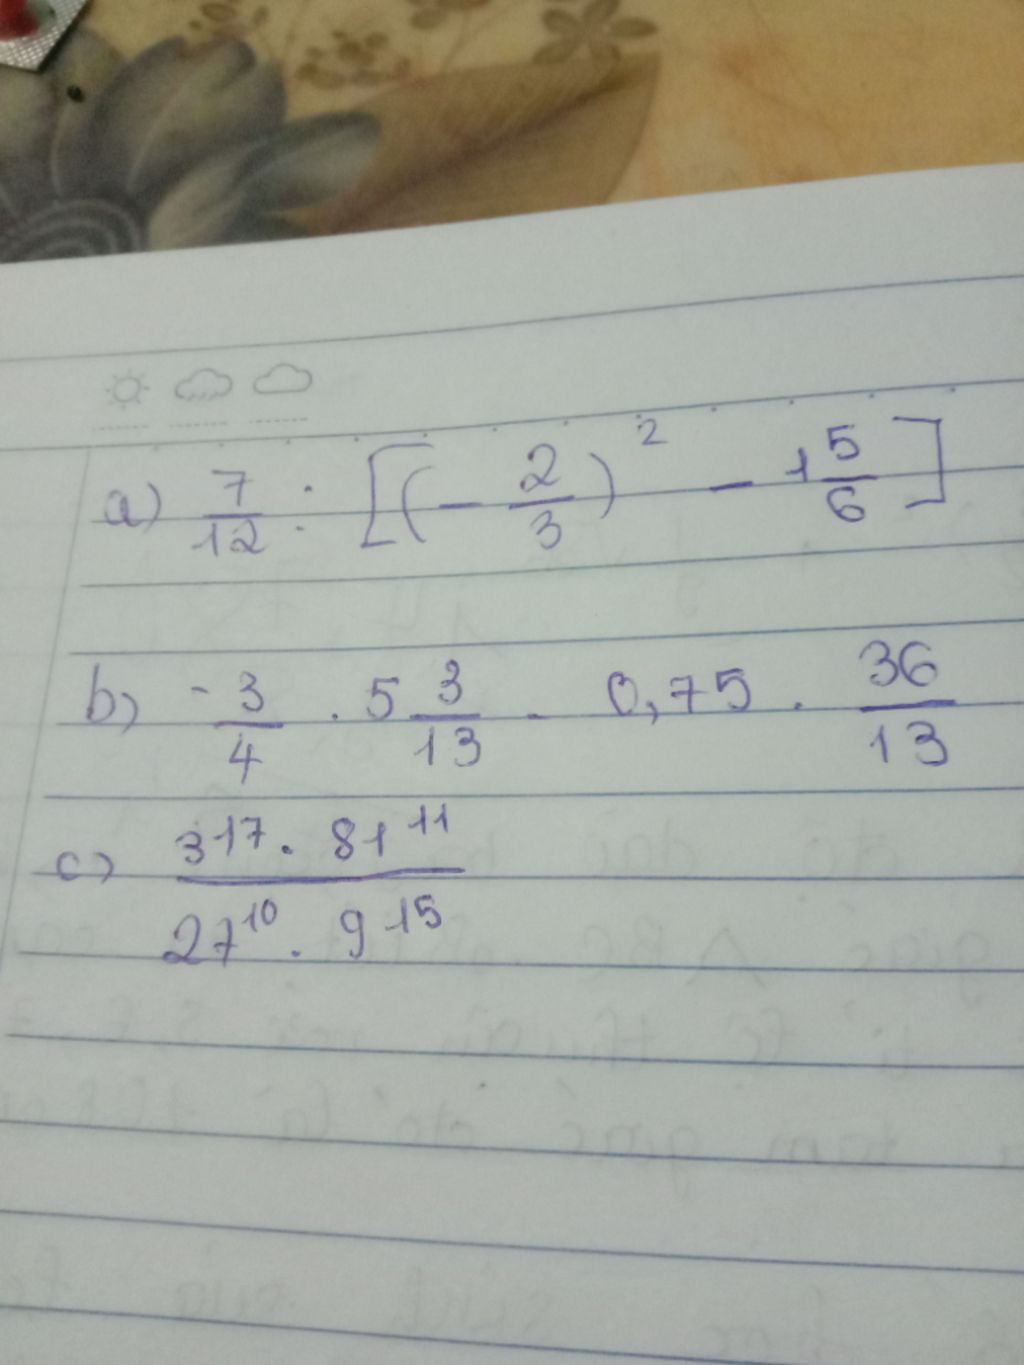 a) 7/12 : [(- 2/3)² - 1 5/6]
b) -3/4 . 5 3/13 - 0,75 . 36/13
c) 3¹⁷ . 81¹¹ / 27¹⁰ . 9¹⁵